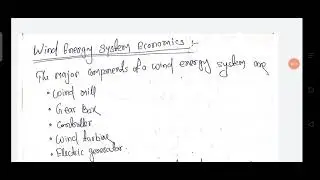 Wind Energy System Economics :-
The major components of a wind energy system are
• Wind mill
• Gear box
• Controller
• Wind turbine
• Electric generator.